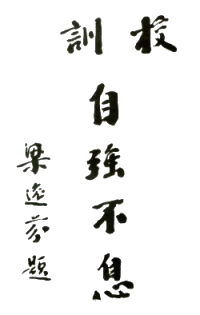 校訓
自強不息
梁逸芬題